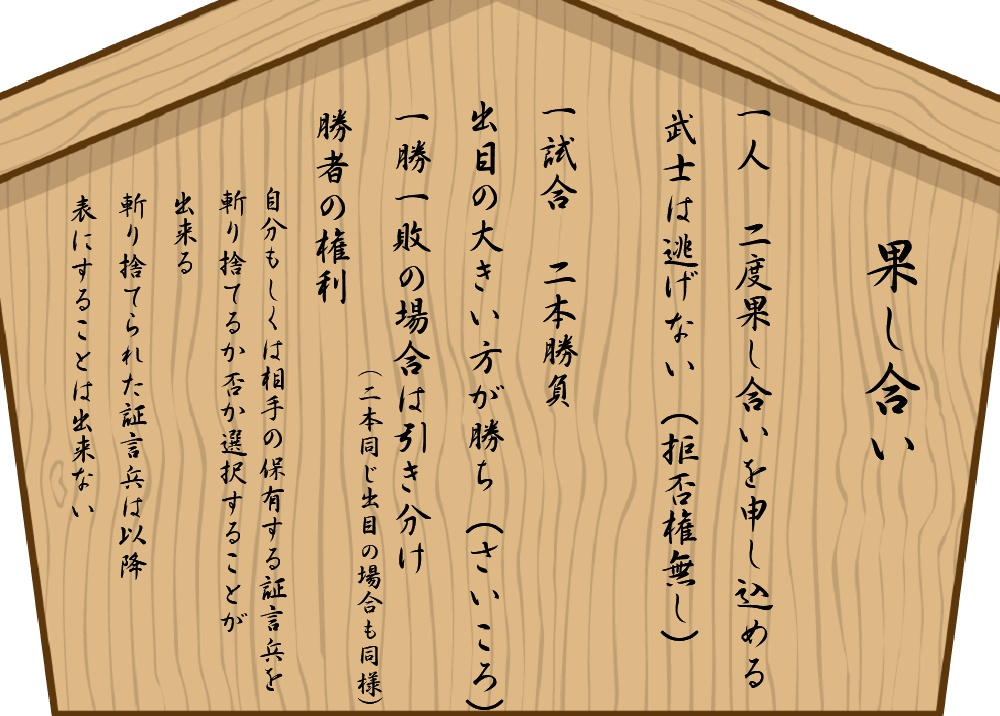 果し合い
一人　二度果し合いを申し込める
武士は逃げない（拒否権無し）
一試合　二本勝負
出目の大きい方が勝ち（さいころ）
一勝一敗の場合は引き分け
（二本同じ出目の場合も同様）
勝者の権利
自分もしくは相手の保有する証言兵を
斬り捨てるか否か選択することが
出来る
斬り捨てられた証言兵は以降
表にすることは出来ない